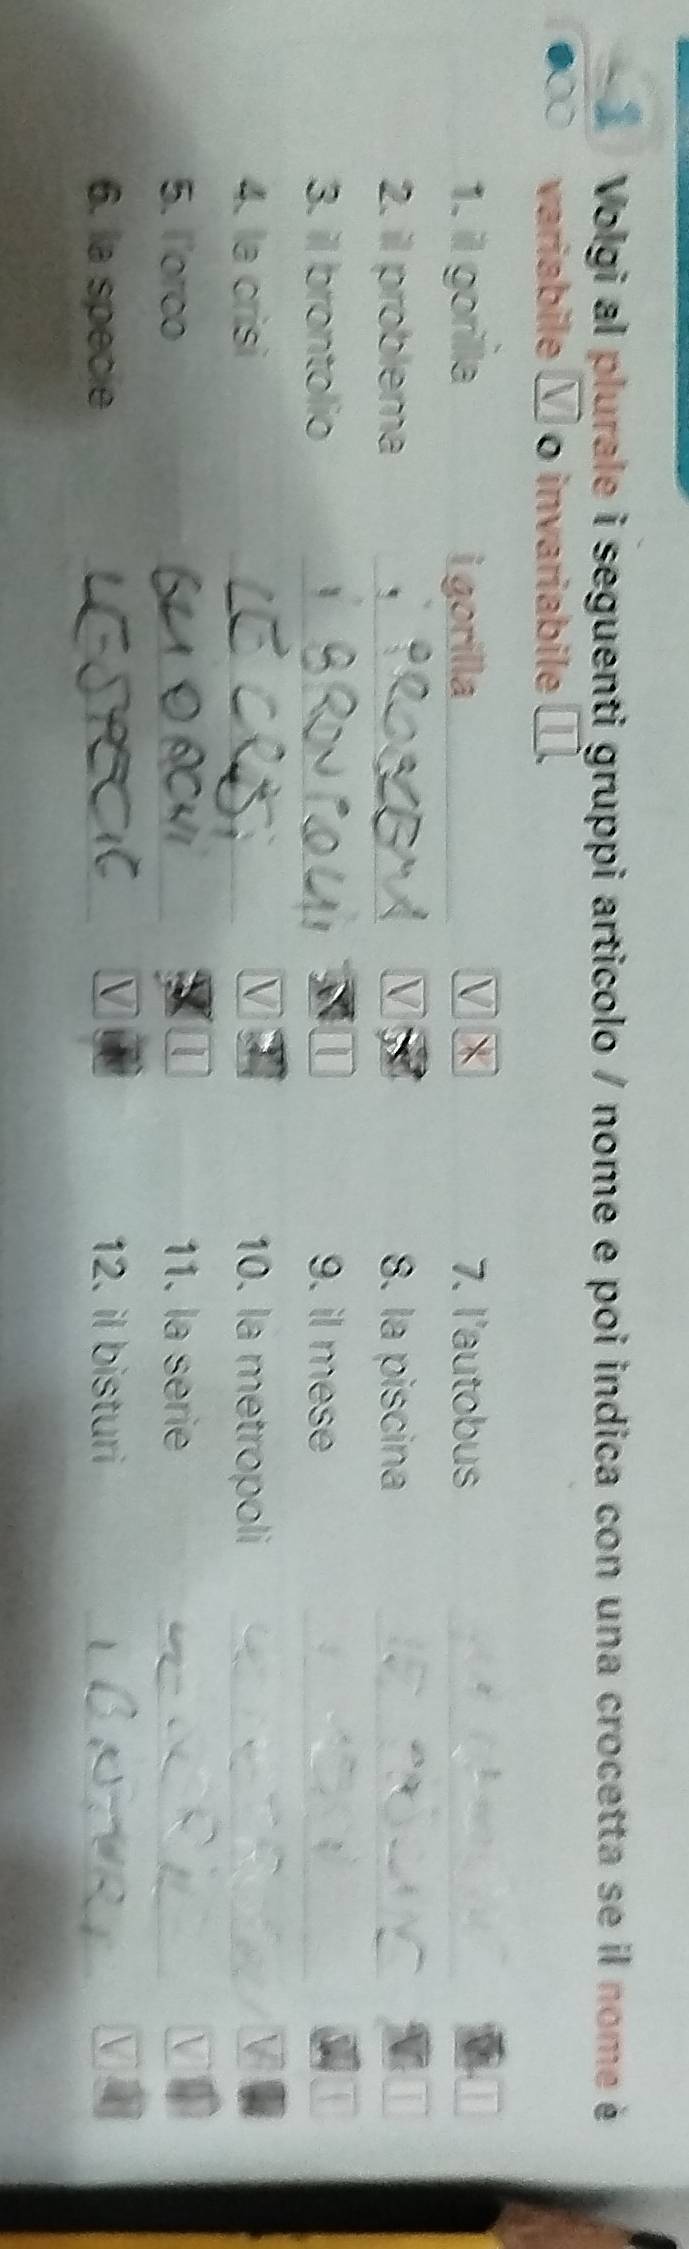 1 Volgi al plurale i seguenti gruppi articolo / nome e poi indica con una crocetta se il nome è
variabile V o invariabile I.
1. il gorilla i gorilla V X
2. il problema i V
3. il brontolio i BRONTOLII I
4. la crisi LE CRISI V
5. l'orco GLI ORCHI I
6. la specie LE SPECIE V
7. l'autobus I
8. la piscina LE I
9. il mese I
10. la metropoli V
11. la serie V
12. il bisturi I BISTURI V